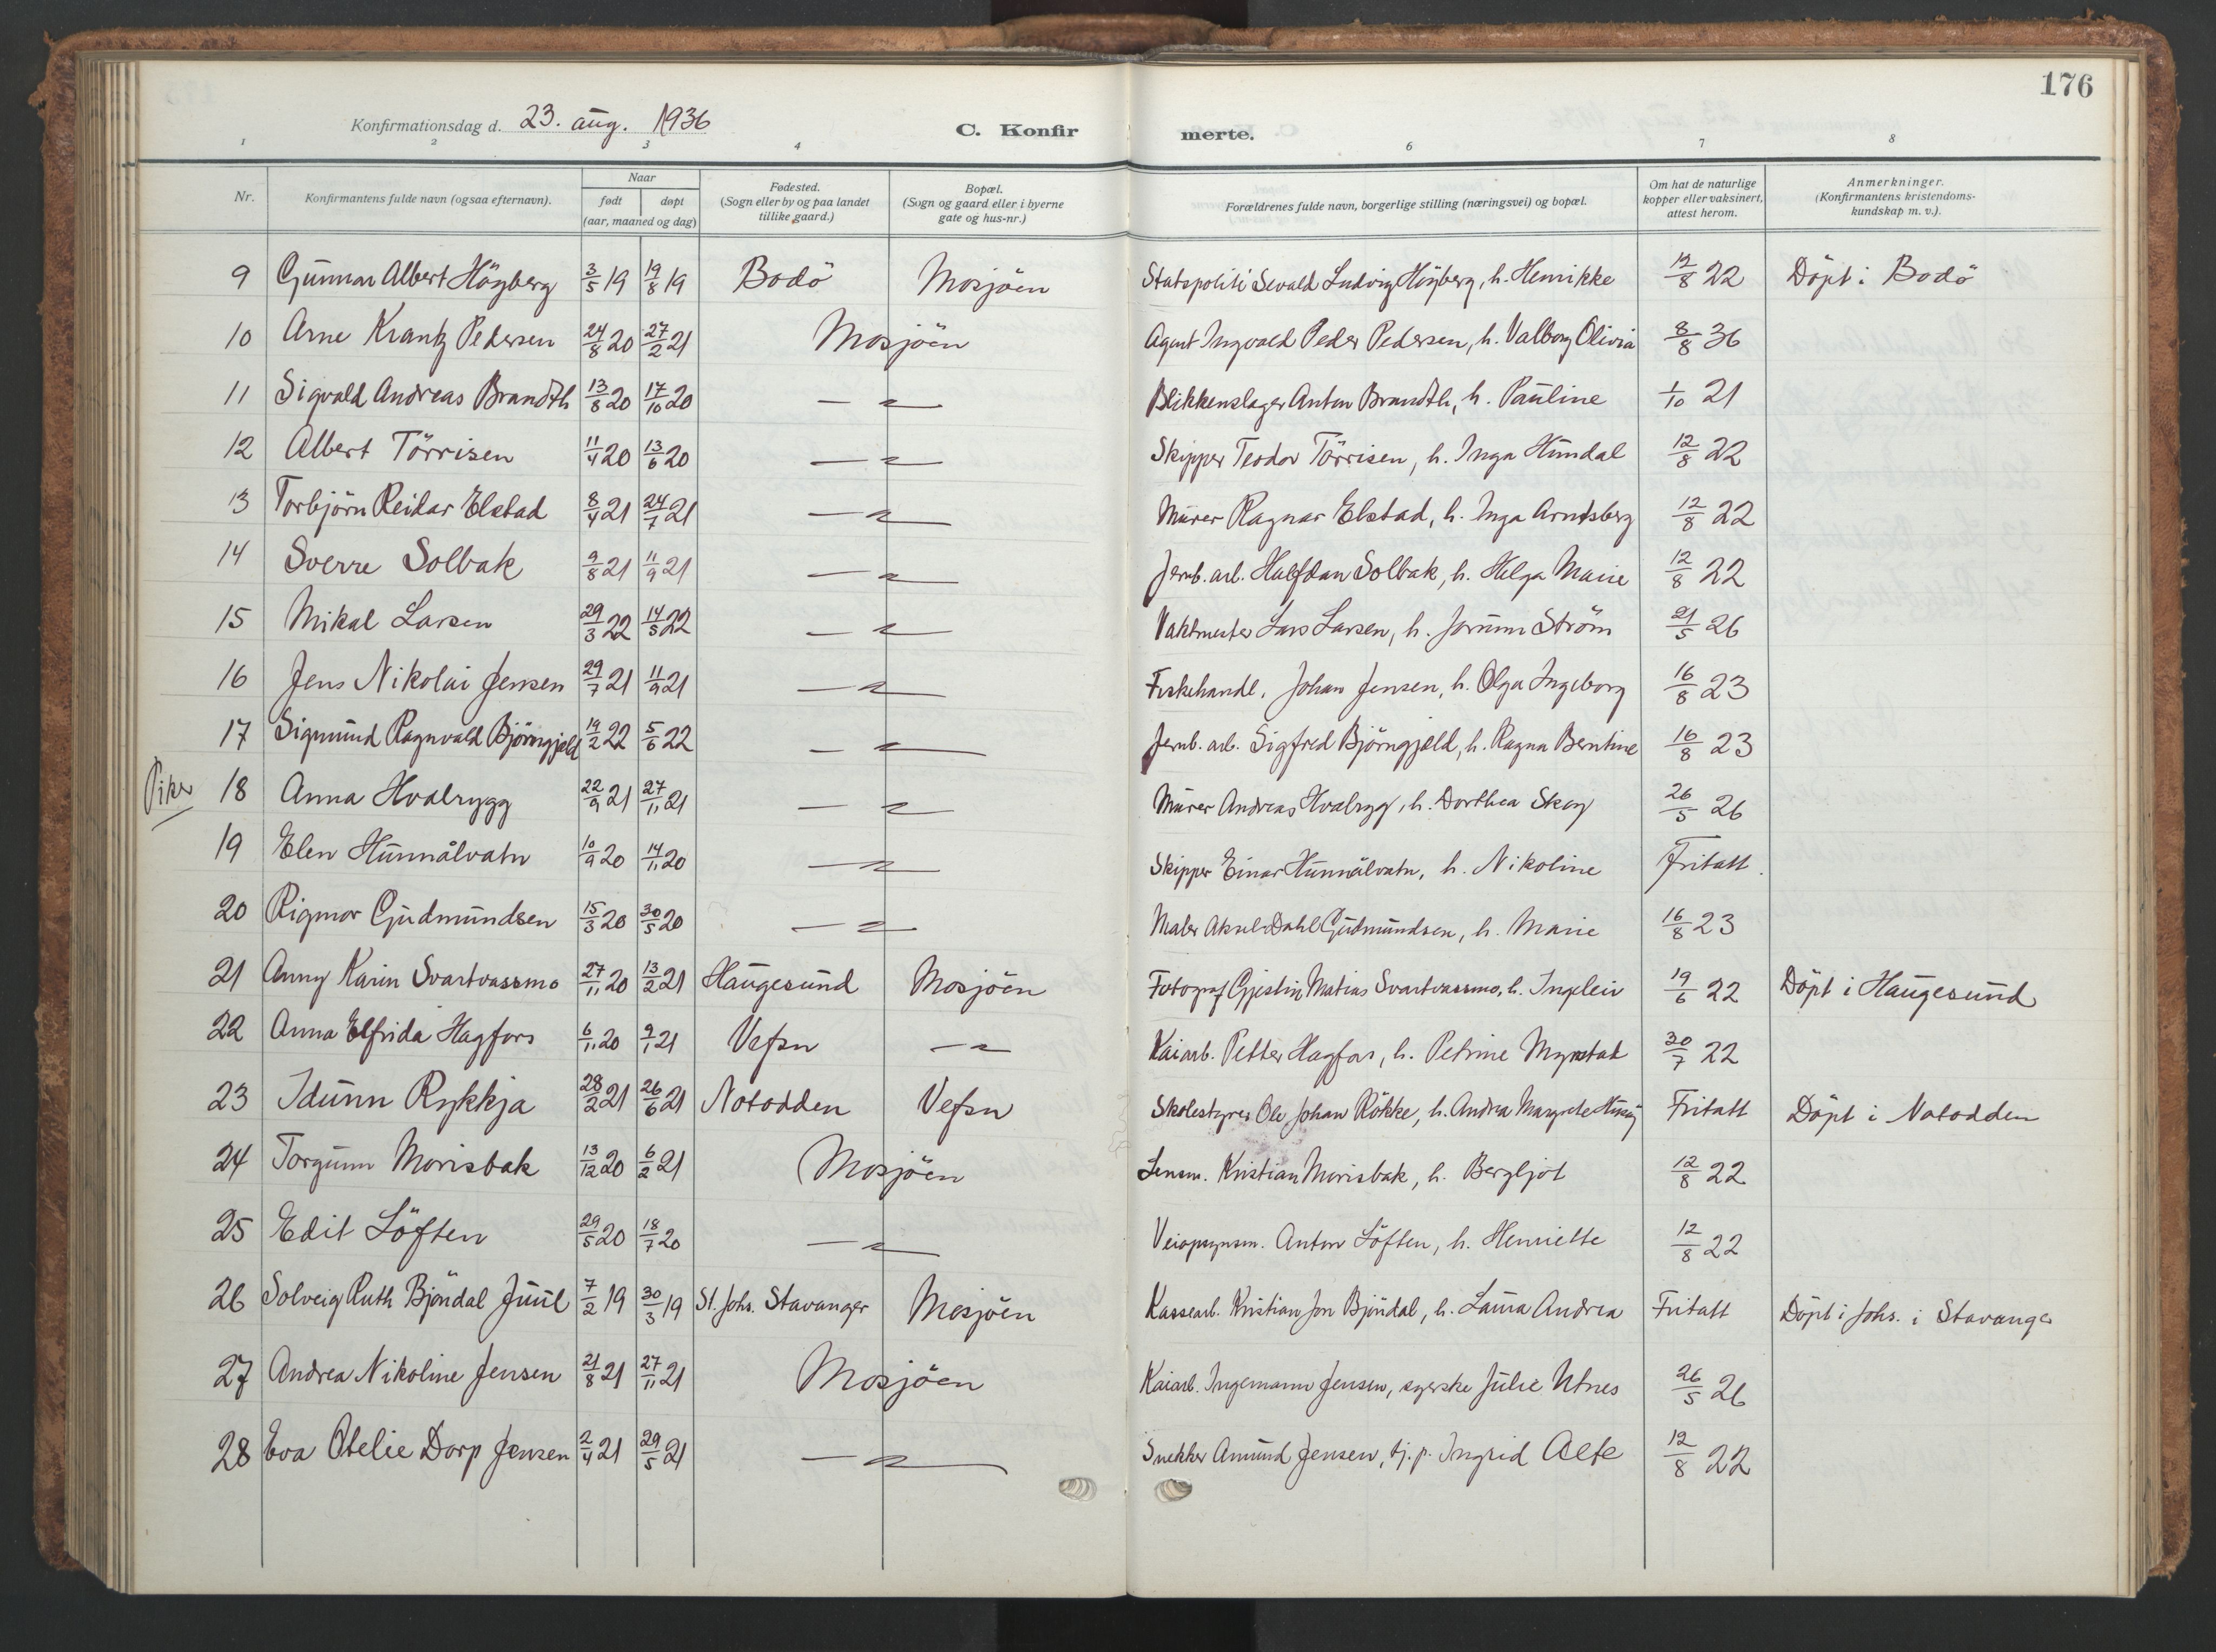 176
Konfirmationsdag d. 23. aug. 1936
C. Konfirmerte.
1 2 3 4 6 7 8
Nr. | Konfirmantens fulde navn (ogsaa efternavn). | Naar født | døpt (aar, maaned og dag) | Fødested. (Sogn eller by og paa landet tillike gaard.) | Bopæl. (Sogn og gaard eller i byerne gate og hus-nr.) | Forældrenes fulde navn, borgerlige stilling (næringsvei) og bopæl. | Om hat de naturlige kopper eller vaksinert, attest herom. | Anmerkninger. (Konfirmantens kristendomskundskap m. v.).
9 Gunnar Albert Högberg 3/5 19 19/8 19 Bodö Mosjöen Statspoliti Sevald Ludvig Högberg, h. Henrikke 12/8 22 Döpt i Bodö
10 Arne Krantz Pedersen 24/8 20 27/2 21 Mosjöen Agent Ingvald Peder Pedersen, h. Valborg Olivia 8/8 36
11 Sigvald Andreas Brandth 13/8 20 17/10 20 —〃— Blikkenslager Anton Brandth, h. Pauline 1/10 21
12 Albert Törrisen 11/4 20 13/6 20 —〃— Skipper Teodor Törrisen, h. Inga Hundal 12/8 22
13 Torbjörn Reidar Elstad 8/4 21 24/7 21 —〃— Murer Ragnar Elstad, h. Inga Arndsberg 12/8 22
14 Sverre Solbak 9/8 21 11/9 21 —〃— Jernb. arb. Halfdan Solbak, h. Helga Marie 12/8 22
15 Mikal Larsen 29/3 22 14/5 22 —〃— Vaktmester Lars Larsen, h. Jorunn Ström 21/5 26
16 Jens Nikolai Jensen 29/7 21 11/9 21 —〃— Fiskehandl. Johan Jensen, h. Olga Ingeborg 16/8 23
17 Sigmund Ragnvald Björngjeld 19/2 22 5/6 22 —〃— Jernb. arb. Sigfred Björngjeld, h. Ragna Berntine 16/8 23
Piker 18 Anna Hvalrygg 22/9 21 27/11 21 —〃— Murer Andreas Hvalrygg, h. Dorthea Skog 26/5 26
19 Elen Hunnålvatn 10/9 20 14/11 20 —〃— Skipper Einar Hunnålvatn, h. Nikoline Fritatt.
20 Rigmor Gudmundsen 15/3 20 30/5 20 —〃— Maler Aksel Dahl Gudmundsen, h. Marie 16/8 23
21 Anny Karin Svartvassmo 27/11 20 13/2 21 Haugesund Mosjöen Fotograf Gjestin Matias Svartvassmo, h. Ingleiv 19/6 22 Döpt i Haugesund
22 Anna Elfrida Hagfors 6/11 20 9/1 21 Vefsn —〃— Kaiarb. Petter Hagfors, h. Petrine 30/7 22
23 Idunn Rykkja 28/2 21 26/6 21 Notodden Vefsn Skolestyrer Ole Johan Rökke, h. Andrea Margrete Fritatt Döpt i Notodden
24 Torgunn Morisbak 13/12 20 6/2 21 Mosjöen Lensm. Kristian Morisbak, h. Bergljot 12/8 22
25 Edit Löften 29/5 20 18/7 20 —〃— Veiopsynsm. Anton Löften, h. Henriette 12/8 22
26 Solveig Ruth Bjöndal Juul 7/2 19 30/3 19 St. Johs. Stavanger Mosjöen Kassearb. Kristian Jon Bjöndal, h. Laura Andrea Fritatt Döpt i Johs. i Stavanger
27 Andrea Nikoline Jensen 21/8 21 27/11 21 Mosjöen Kaiarb. Ingemann Jensen, syerske Julie Utnes 26/5 26
28 Eva Otelie Dorp Jensen 2/4 21 29/5 21 —〃— Snekker Amund Jensen, tj. p. Ingrid Alte 12/8 22